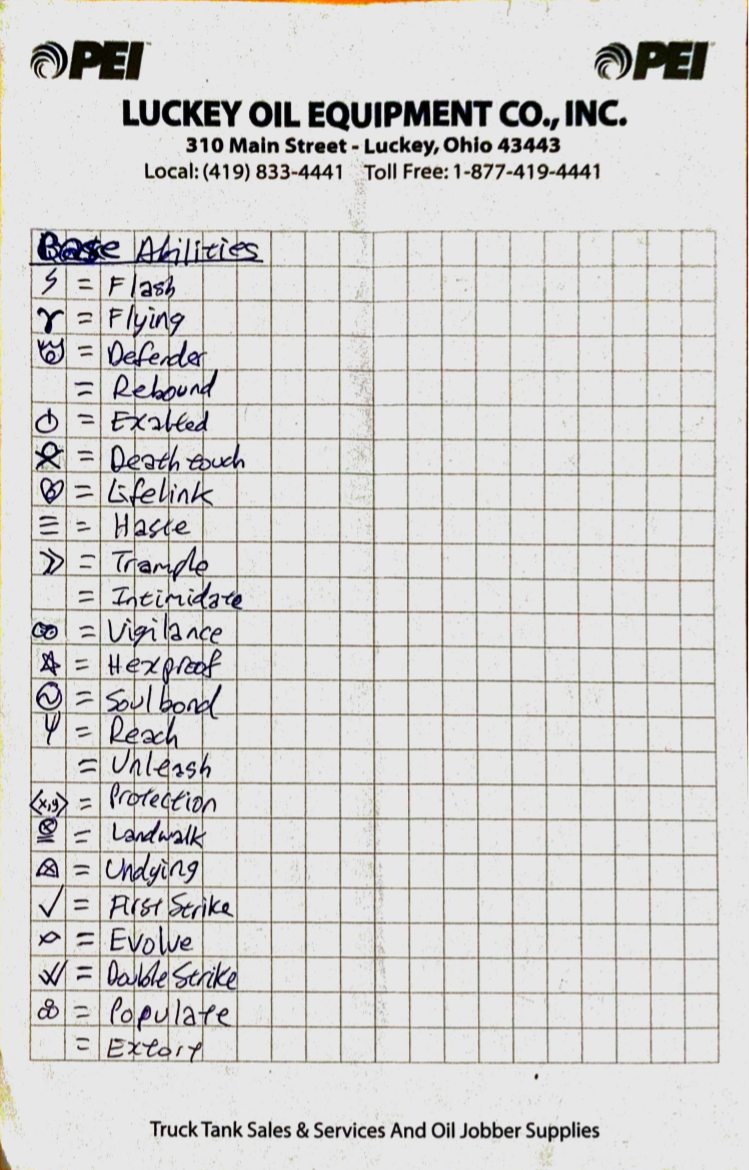 PEI PEI
LUCKEY OIL EQUIPMENT CO., INC.
310 Main Street - Luckey, Ohio 43443
Local: (419) 833-4441 Toll Free: 1-877-419-4441
Base Abilities
= Flash
= Flying
= Defender
= Rebound
= Exalted
= Deathtouch
= Lifelink
= Haste
= Trample
= Intimidate
∞ = Vigilance
= Hexproof
= Soulbond
= Reach
= Unleash
<x,y> = Protection
= Landwalk
= Undying
✓ = First Strike
= Evolve
= Double Strike
= Populate
= Extort
Truck Tank Sales & Services And Oil Jobber Supplies